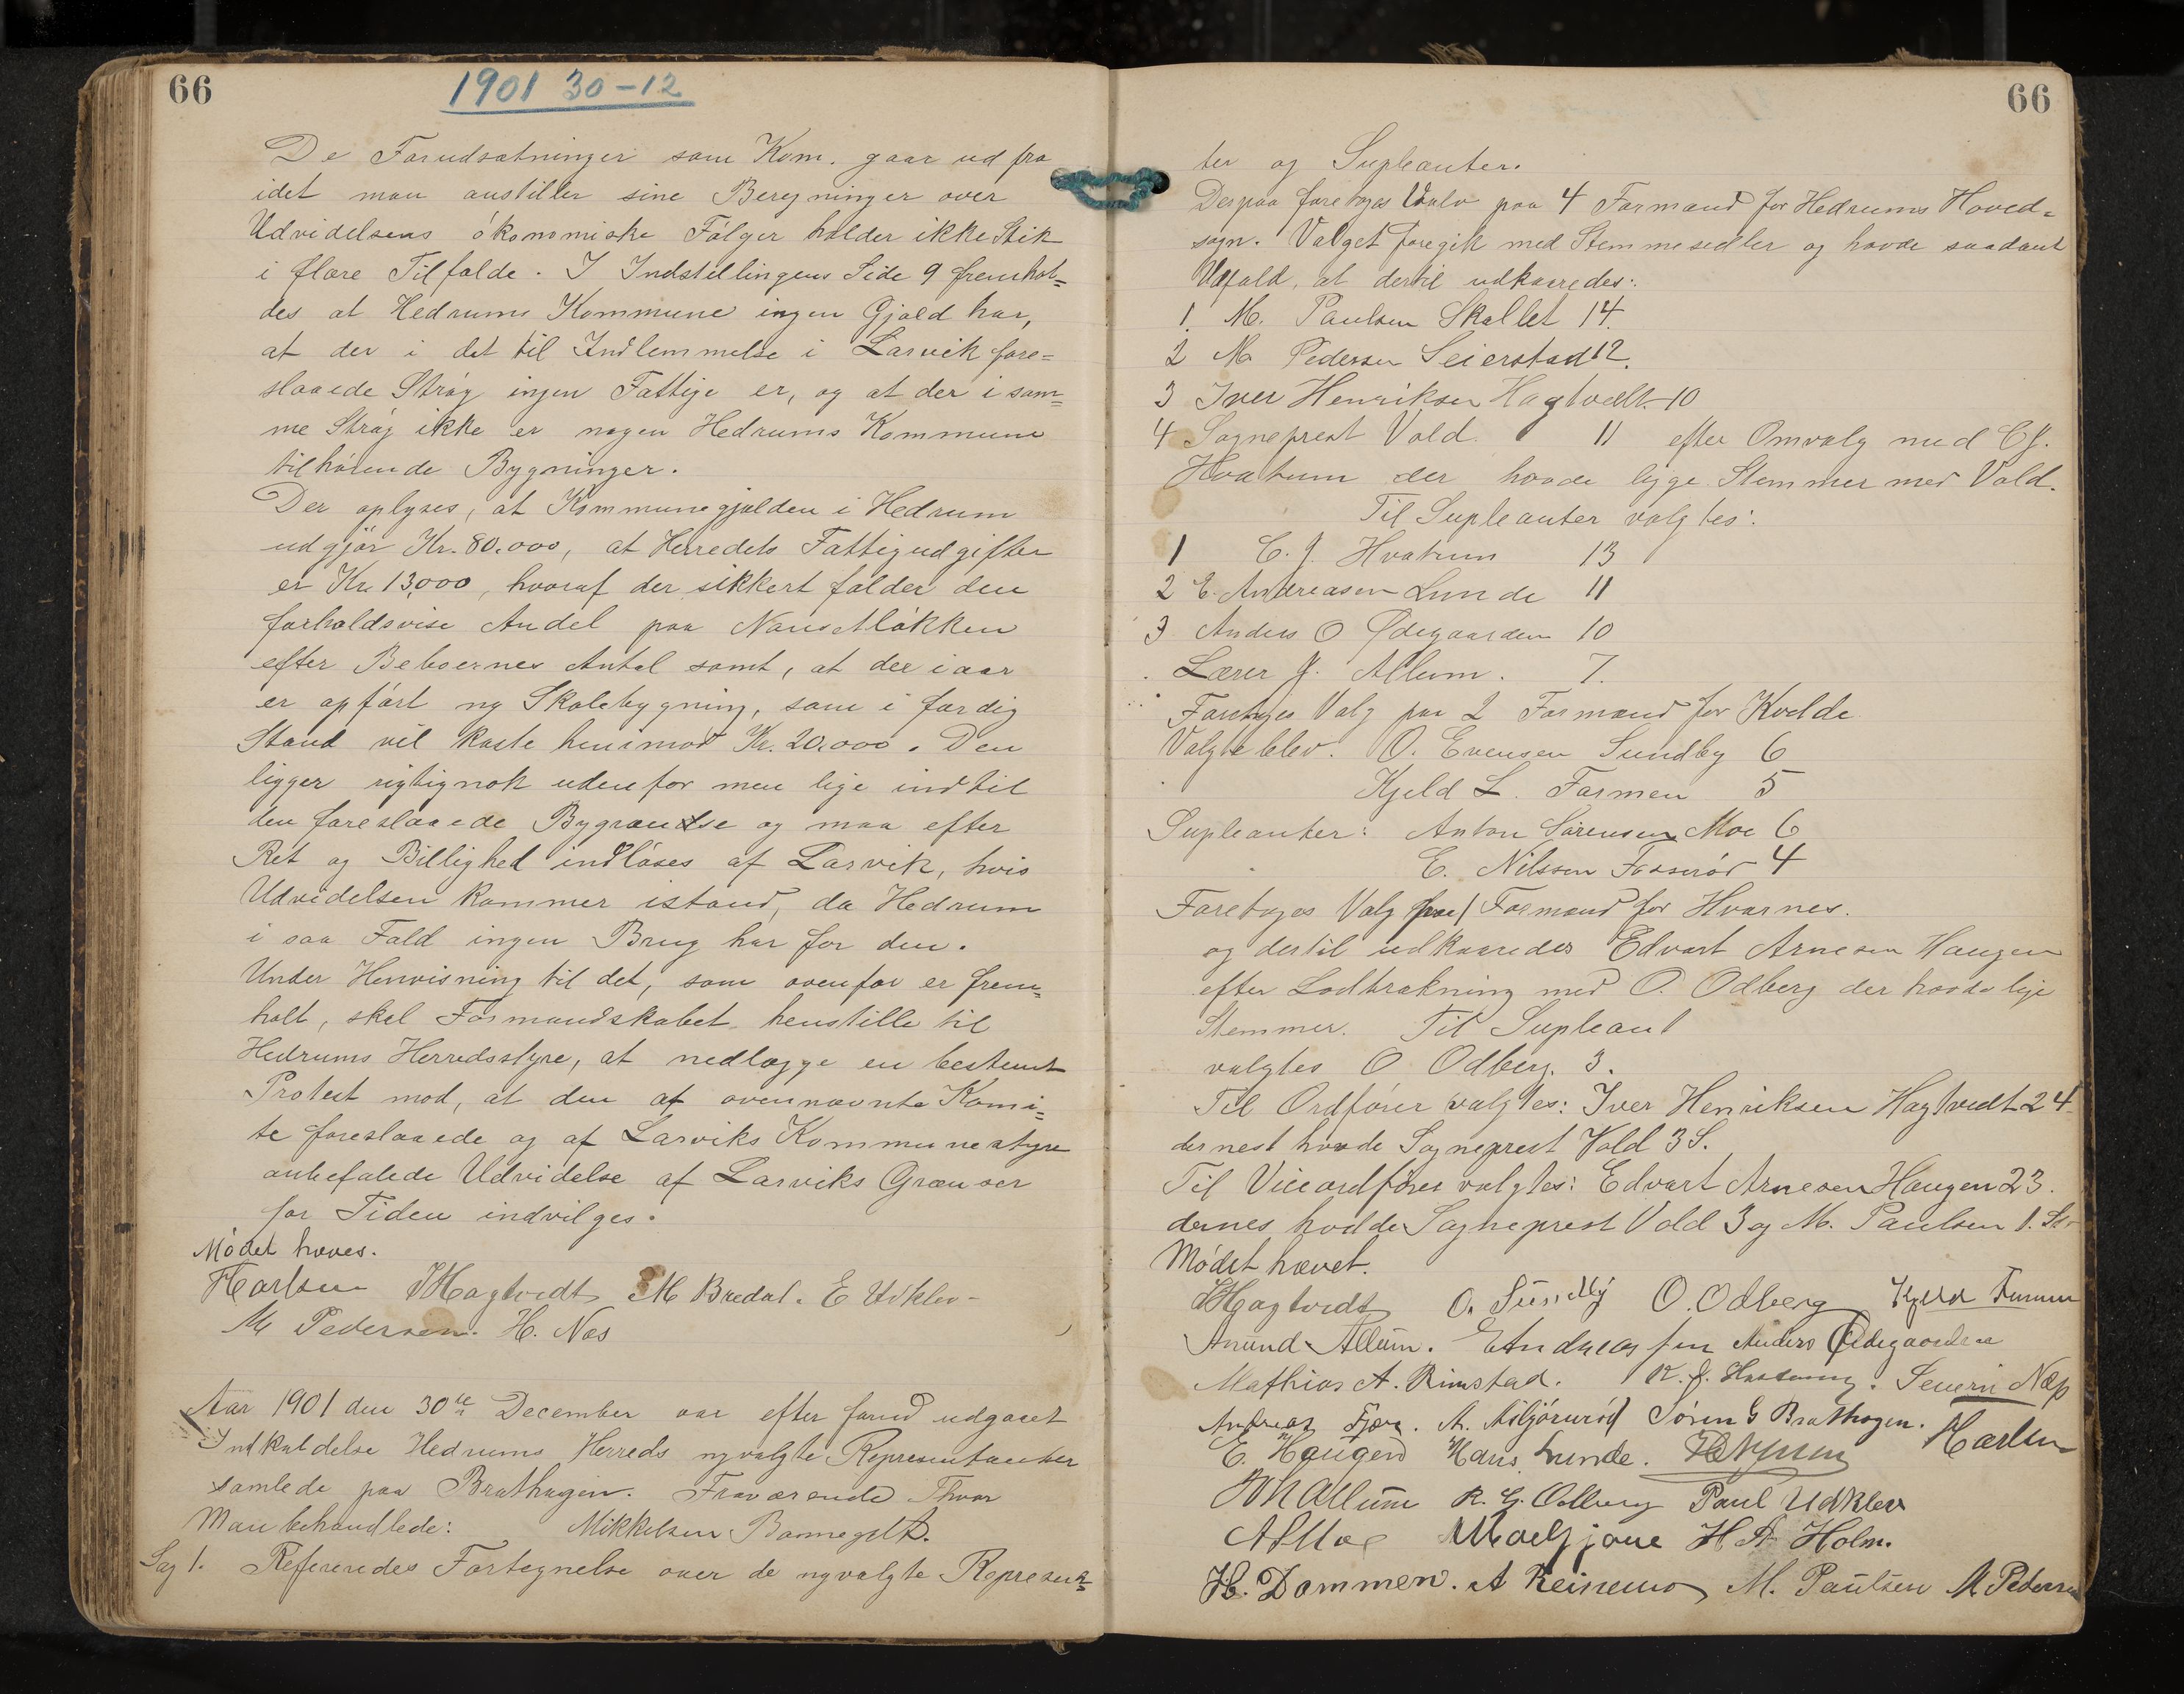 66
1901 30-12
De Forudsætninger som Kom. gaar ud fra
idet man anstiller sine Beregninger over
Udvidelsens økonomiske Følger holder ikke Stik
i flere Tilfælde. I Indstillingens Side 9 fremhol=
des at Hedrums Kommune ingen Gjæld har,
at der i det til Indlemmelse i Larvik fore=
slaaede Strøg ingen Fattige er, og at der i sam=
me Strøg ikke er nogen Hedrums Kommune
tilhørende Bygninger.
Der oplyses, at Kommunegjælden i Hedrum
udgjør Kr. 80.000, at Herredets Fattigudgifter
er Kr. 13,000, hvoraf der sikkert falder den
forholdsvise Andel paa Nansetløkken
efter Beboernes Antal samt, at der i aar
er opført ny Skolebygning, som i færdig
Stand vil koste henimod Kr. 20.000. Den
ligger rigtignok udenfor men lige indtil
den foreslaaede Bygrændse og maa efter
Ret og Billighed indløses af Larvik, hvis
Udvidelsen kommer istand, da Hedrum
i saa Fald ingen Brug har for den.
Under Henvisning til det, som ovenfor er frem=
holt, skal Formandskabet henstille til
Hedrums Herredsstyre, at nedlægge en bestemt
Protest mod, at den af ovennævnte Komi=
te foreslaaede og af Larviks Kommunestyre
anbefalede Udvidelse af Larviks Grænser
for Tiden indvilges.
Mødet hæves.
HCarlsen IHagtvedt M Bredal. E Udklev
M Pedersen. H. Næs
Aar 1901 den 30te December var efter forud udgaaet
Indkaldelse Hedrums Herreds nyvalgte Representanter
samlede paa Brathagen. Fraværende Thor
Man behandlede: Mikkelsen Bommegdt.
Sag 1. Refereredes Fortegnelse over de nyvalgte Represen=
66
ter og Supleanter.
Derpaa foretoges Valg paa 4 Formænd for Hedrums Hoved=
sogn. Valget foregik med Stemmesedler og havde saadant
Udfald, at dertil udkaaredes:
1. M. Paulsen Skallet 14.
2 M Pedersen Seierstad 12.
3 Iver Henriksen Hagtvedt 10
4 Sogneprest Vold. 11 efter Omvalg med C J.
Hvatum der havde lige Stemmer med Vold.
Til Supleanter valgtes:
1 C. J. Hvatum 13
2 E. Andreasen Lunde 11
3 Anders O Ødegaarden 10
Lærer J. Allum. 7.
Foretoges Valg paa 2 Formænd for Kvelde
Valgte blev. O. Evensen Sundby 6
Kjeld L. Farmen 5
Supleanter: Anton Sørensen Moe 6
E. Nilssen Fosserød 4
Foretoges Valg paa 1 Formand for Hvarnes.
og dertil udkaaredes Edvart Arnesen Haugen
efter Lodtrækning med O. Odberg der havde lige
Stemmer. Til Supleant
valgtes O Odberg. 3.
Til Ordfører valgtes: Iver Henriksen Hagtvedt 24
dernest havde Sogneprest Vold 3 S.
Til Viceordfører valgtes: Edvart Arnesen Haugen 23.
dernes havde Sogneprest Vold 3 og M. Paulsen 1. St
Mødet hævet.
IHagtvedt O. Sundby O. Odberg Kjeld Farmen
Anund Allum. EAndreassen Anders Ødegaarden
Mathias A. Rimstad. Severin Næss
Andreas Fjære. A. Søren G Brathagen. HCarlsen
E. Haugen Hans Lunde.
Allum K. G. Odberg Paul Udklev
ASMoe H A Holm.
H. Dammen. A M. Paulsen M Pedersen